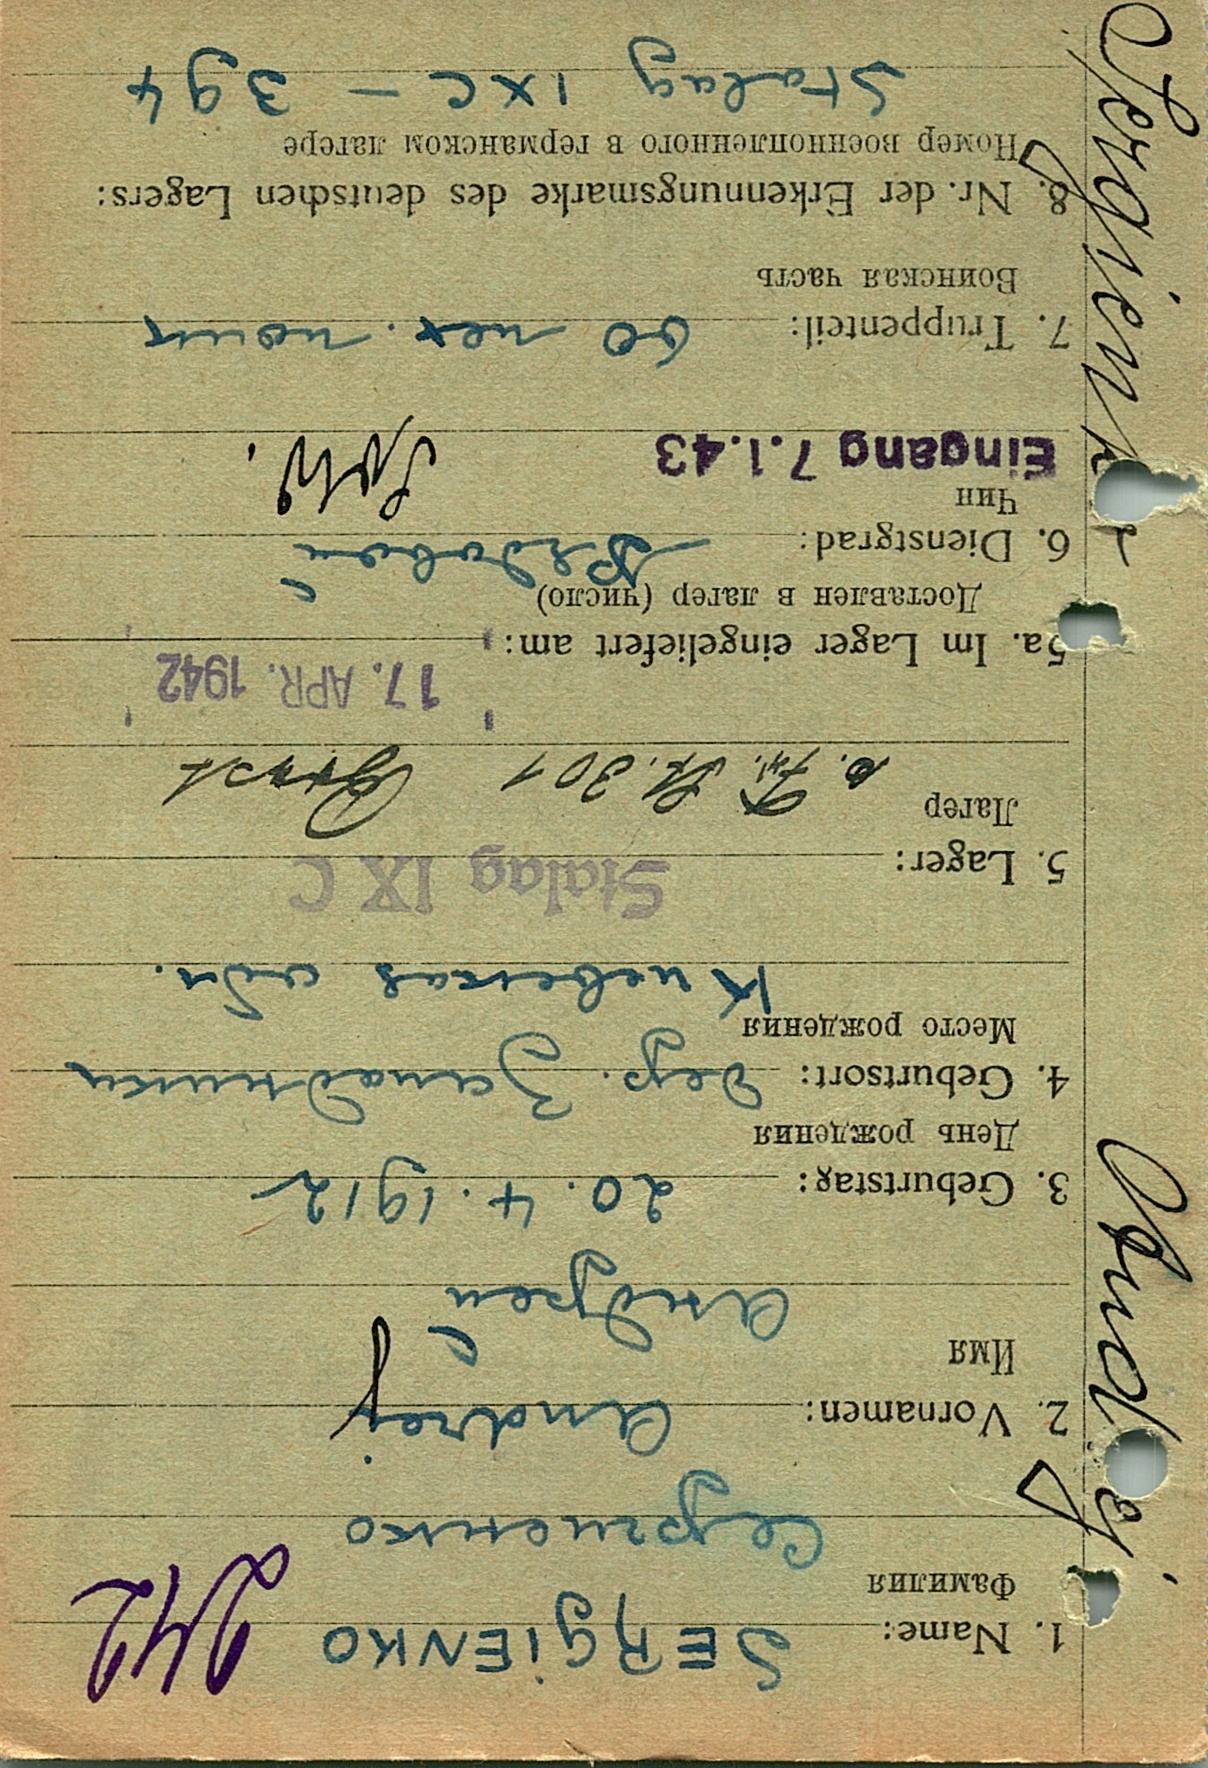 242
1. Name: SERGIENKO
Фамилия
Сергиенко
2. Vornamen: Andrej
Имя
Андрей
3. Geburtstag: 20. 4. 1912
День рождения
4. Geburtsort: дер. Западинка
Место рождения
Киевская обл.
Stalag IX C
5. Lager:
Лагер
St. 301
17. APR. 1942
5a. Im Lager eingeliefert am:
Доставлен в лагер (число)
6. Dienstgrad: Рядовой
Чин
Eingang 7.1.43
7. Truppenteil: 60 мех. полк
Воинская часть
8. Nr. der Erkennungsmarke des deutschen Lagers:
Номер военнопленного в германском лагере
Stalag IXC – 394
Andrej
Sergienko